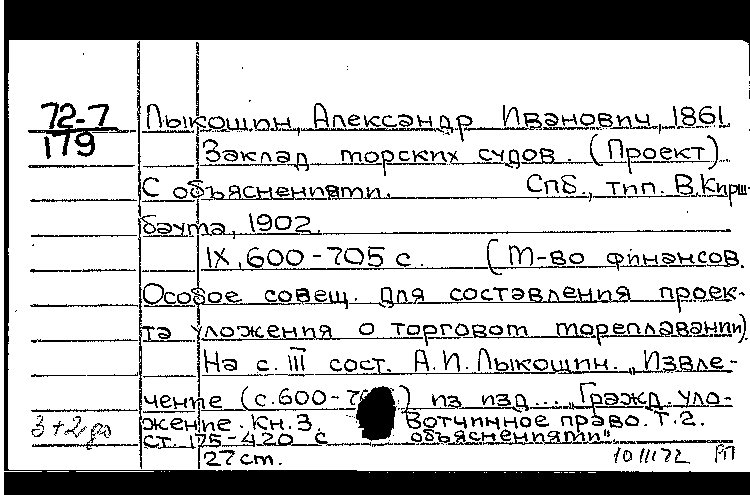 72-7
179
Лыкошин, Александр Иванович, 1861
Заклад морских судов. (Проект)
С объяснениями. Спб., тип. В. Кирш-
баума, 1902.
IX, 600-705 с. (М-во финансов.
Особое совещ. для составления проек-
та уложения о торговом мореплавании)
На с. III сост. А.И. Лыкошин. „Извле-
чение (с. 600- ) из изд... „Гражд. уло-
жение. Кн. 3. Вотчинное право. Т. 2.
ст. 175-420 с объяснениями"
3+2
27 см.
10 III 72 РП